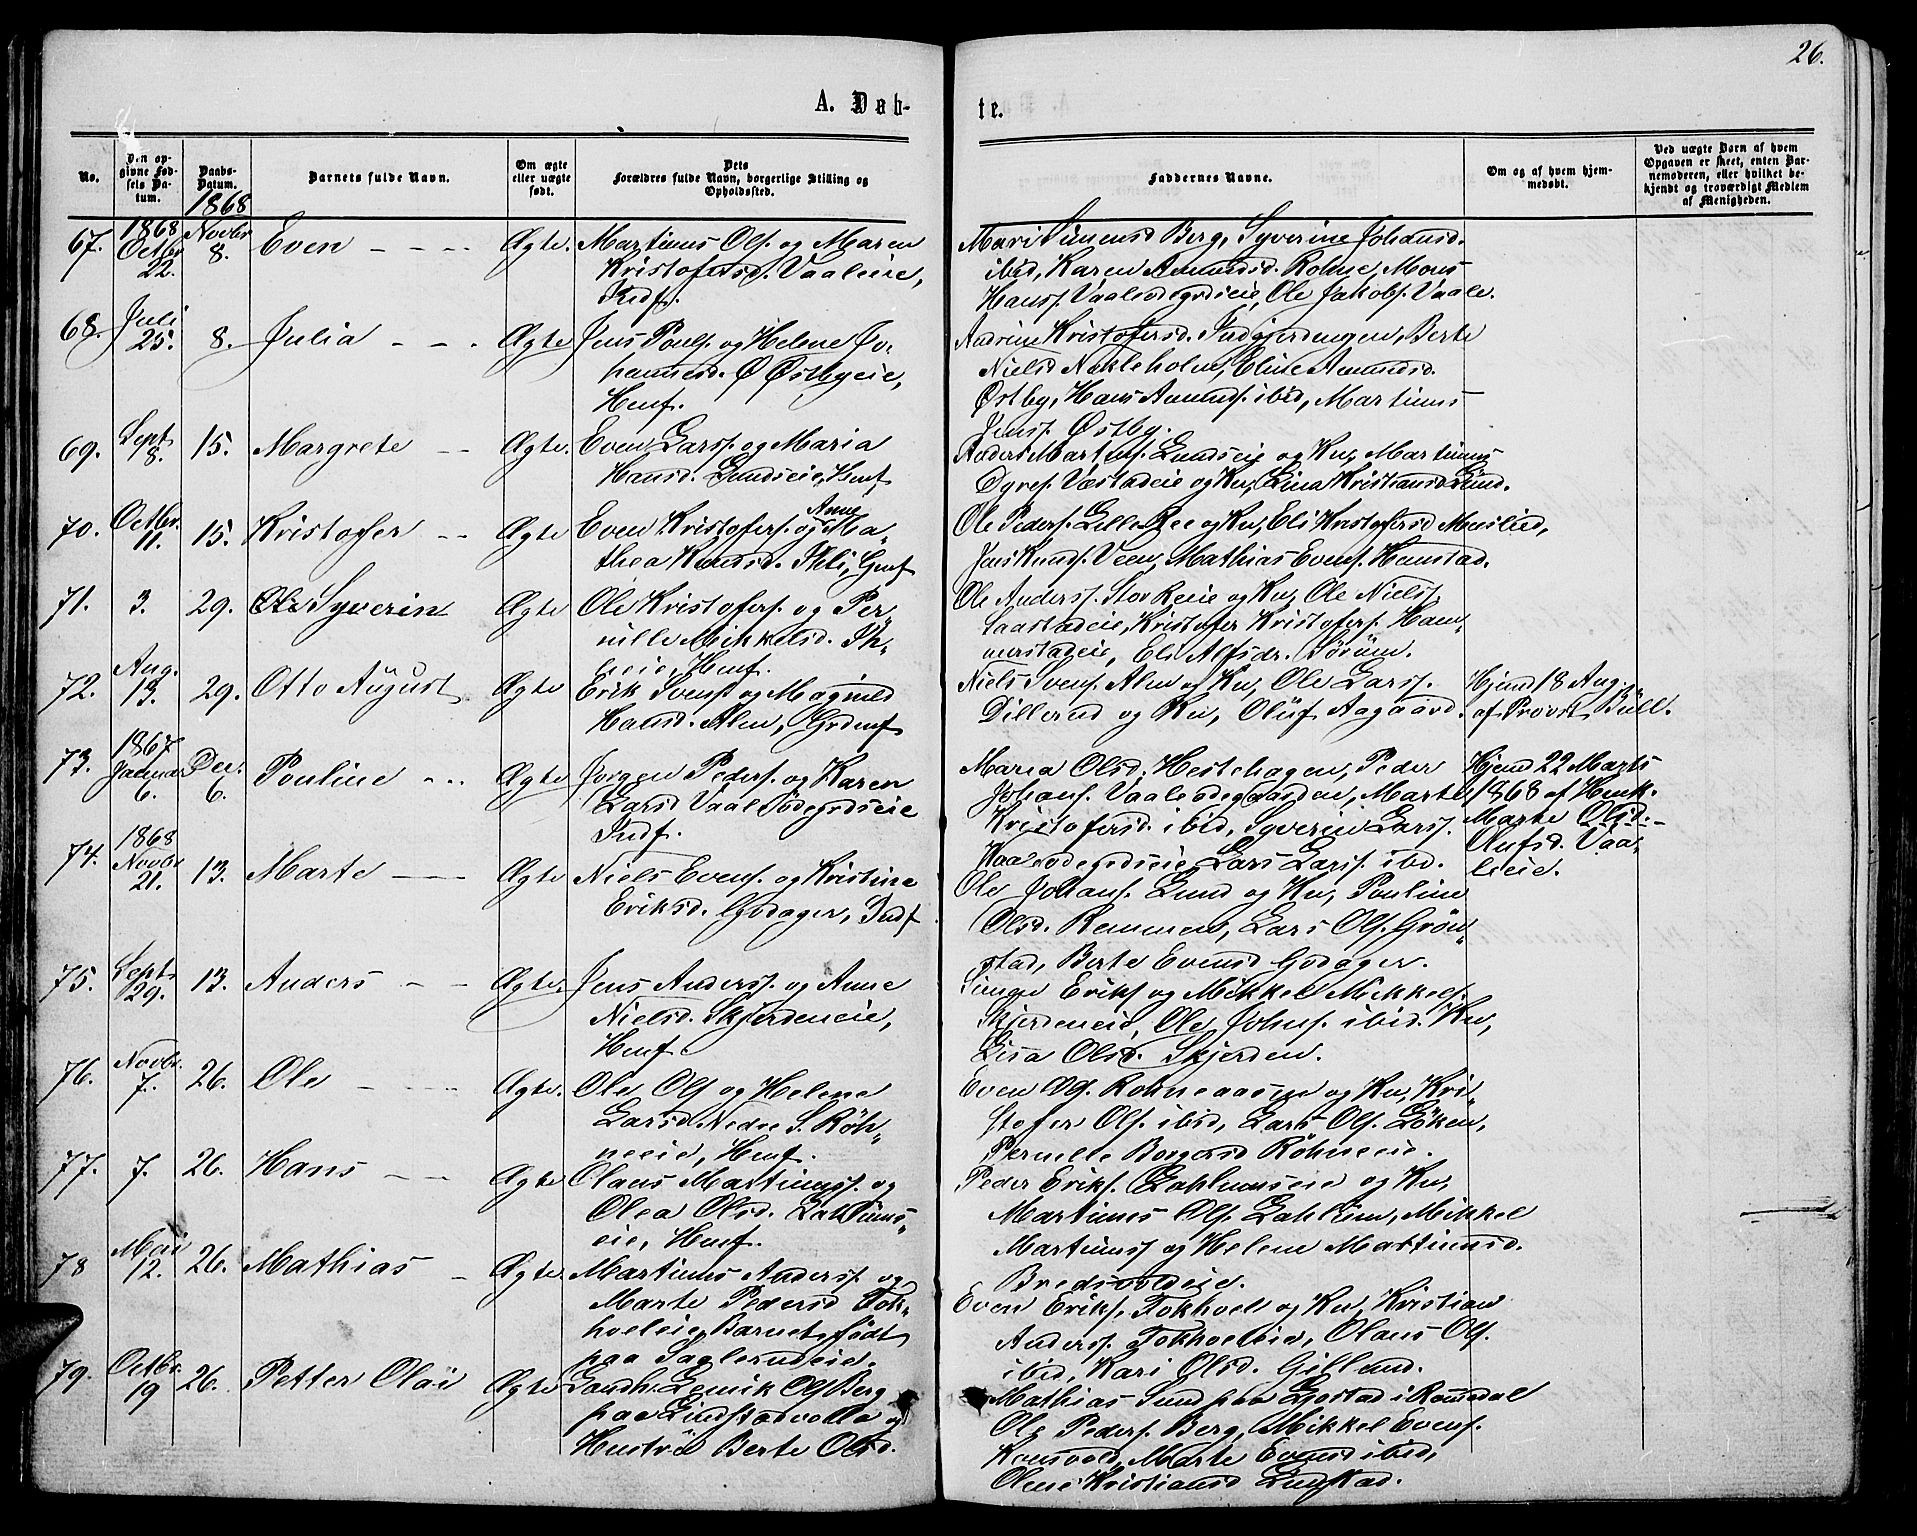 26.
A. Døb-
te.
No.
Den op-
givne Fød-
sels Da-
tum.
Daabs-
Datum.
Barnets fulde Navn.
Om ægte
eller uægte
født.
Dets
Forældres fulde Navn, borgerlige Stilling og
Opholdssted.
Faddernes Navne.
Om og af hvem hjem-
medøbt.
Ved uægte Børn af hvem
Opgaven er skeet, enten Bar-
nemoderen, eller hvilket be-
kjendt og troværdigt Medlem
af Menigheden.
1868
67.
1868
Octbr
22.
Novbr
8.
Even
Ægte.
Martinus Ols. og Maren
Kristofersd. Vaaleie,
Indf.
Mari Simensd Berg, Syverine Johansd.
ibid, Karen Amundsd. Rohne, Mons
Hans. Vaalsødegrdseie, Ole Jakobs. Vaale.
68.
Juli
25.
8.
Julia
Ægte
Jens Pouls. og Helene Jo-
hannesd. Ø Østbyeie,
Henf.
Andrine Kristofersd. Indgjerdengen, Berte
Nielsd Nakleholm, Eline Amundsd.
Østby, Hans Amunds. ibid, Martinus
Jens. Østby.
69.
Sept
8.
15.
Margrete
Ægte.
Even Larss. og Maria
Hansd. Lundseie, Henf
Anders Martins. Lundseie og Ku, Martinus
Dyres. Væstadeie og Ku, Lina Kristiansd Lund.
70.
Octbr.
11.
15.
Kristofer
Ægte
Even Kristofers. og Anne Ma-
thea Knudsd. Ihli, Henf
Ole Peders. Lille Ree og Ku, Eli Kristofersd Muslied,
Jens Knuds. Veen, Mathias Evens. Hamstad.
71.
3.
29.
Ole Syverin
Ægte
Ole Kristofers. og Per-
nille Mikkelsd. Ih-
leeie, Henf.
Ole Anderss. Stor Reeie og Ku, Ole Niels.
Saastadeie, Kristofer Kristofers. Ham-
merstadeie, Eli Alfsdr. Sörum.
72.
Aug.
13.
29.
Otto August
Ægte
Erik Svens. og Magnild
Hansd. Alm, Grdenf
Niels Svens. Alm og Ku, Ole Larss.
Dillerud og Ku, Oluf Aagaard.
Hjemd 18 Aug.
af Provst Bull.
73.
1867
Januar
6.
Dec.
6.
Pouline
Ægte
Jörgen Peders. og Karen
Larsd Vaalsödegrdseie
Indf.
Maria Olsd. Hestehagen, Peder
Johans. Vaalsødegaarden, Marte
Kristofersd. ibid, Syverin Larss.
Vaalsødegrdseie, Lars Larss. ibid.
Hjemd 22 Marts
1868 af Henk.
Marte Olsd.
Aufsd. Vaa-
leeie.
74.
1868
Novbr
21.
13.
Marte
Ægte
Niels Evens. og Kristine
Eriksd. Godager, Indf
Ole Johans. Lund og Ku, Pouline
Olsd. Remmen, Lars Ols. Grön-
stad, Berte Evensd Godager.
75.
Sept
29.
13.
Anders
Ægte.
Jens Anderss. og Anne
Nielsd. Skjerdeneie,
Henf.
Simen Eriks og Mikkel Mikkels.
Skjerdeneie, Ole Johns. ibid. Ku,
Lisa Olsd. Skjerden.
76.
Novbr.
7.
26.
Ole
Ægte.
Ole Ols og Helene
Larsd Nedre S. Röh-
neeie, Henf.
Even Ols. Rohneaasen og Ku, Kri-
stofer Ols. ibid, Lars Ols. Löken,
Pernelle Borgersd Röhneeie.
77.
7.
26.
Hans
Ægte
Olaus Martinuss. og
Olea Olsd. Lahlums-
eie, Henf.
Peder Eriks. Lahlumseie og Ku,
Martinus Ols. Lahlum, Mikkel
Martinuss og Helene Martinusd.
Bredsvoldeie.
78
Mai
12.
26.
Mathias
Ægte.
Martinus Anderss. og
Marte Pedersd Tok-
holeie, Barnet født
paa Saglerudeie.
Even Eriks. Tokhoel og Ku, Kristian
Anderss. Tokhoeleie, Olaus Ols.
ibid, Kari Olsd. Gillund.
79.
Octbr.
19
26.
Petter Olai
Ægte
Landh. Lemik Ols Berg
paa Lindstadvolla og
Hustrü Berte Olsd.
Mathias Sund paa Lyestad i Romedal
Ole Peders. Berg, Mikkel Evens.
Konsvold, Marte Evensd ibid,
Olene Kristiansd Lindstad.